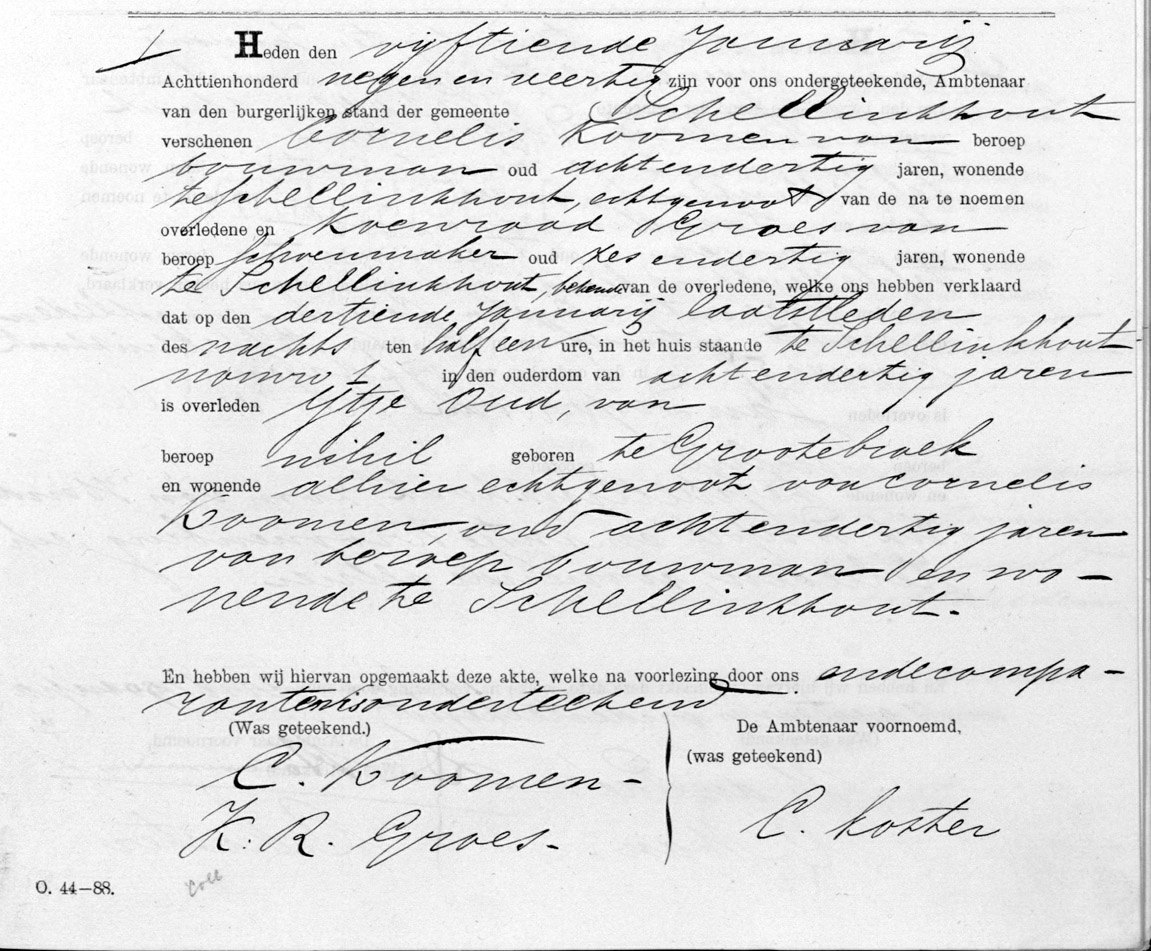 1 Heden den vijftiende Januarij
Achttienhonderd negen en veertig zijn voor ons ondergeteekende, Ambtenaar
van den burgerlijken stand der gemeente Schellinkhout
verschenen Cornelis Koomen van beroep
bouwman oud achtendertig jaren, wonende
te Schellinkhout, echtgenoot van de na te noemen
overledene en Koenraad Groes van
beroep Schoenmaker oud zesendertig jaren, wonende
te Schellinkhout, bekende van de overledene, welke ons hebben verklaard
dat op den dertiende Januarij laatstleden
des nachts ten half een ure, in het huis staande te Schellinkhout
nomro 1 in den ouderdom van achtendertig jaren
is overleden Ytje Oud, van
beroep nihil geboren te Grootebroek
en wonende alhier echtgenoot van Cornelis
Koomen oud achtendertig jaren
van beroep bouwman en wo-
nende te Schellinkhout.
En hebben wij hiervan opgemaakt deze akte, welke na voorlezing door ons en de compa-
ranten is onderteekend
(Was geteekend.)
C. Koomen-
K. R. Groes-
De Ambtenaar voornoemd,
(was geteekend)
C. Koster
O. 44—88.
coll